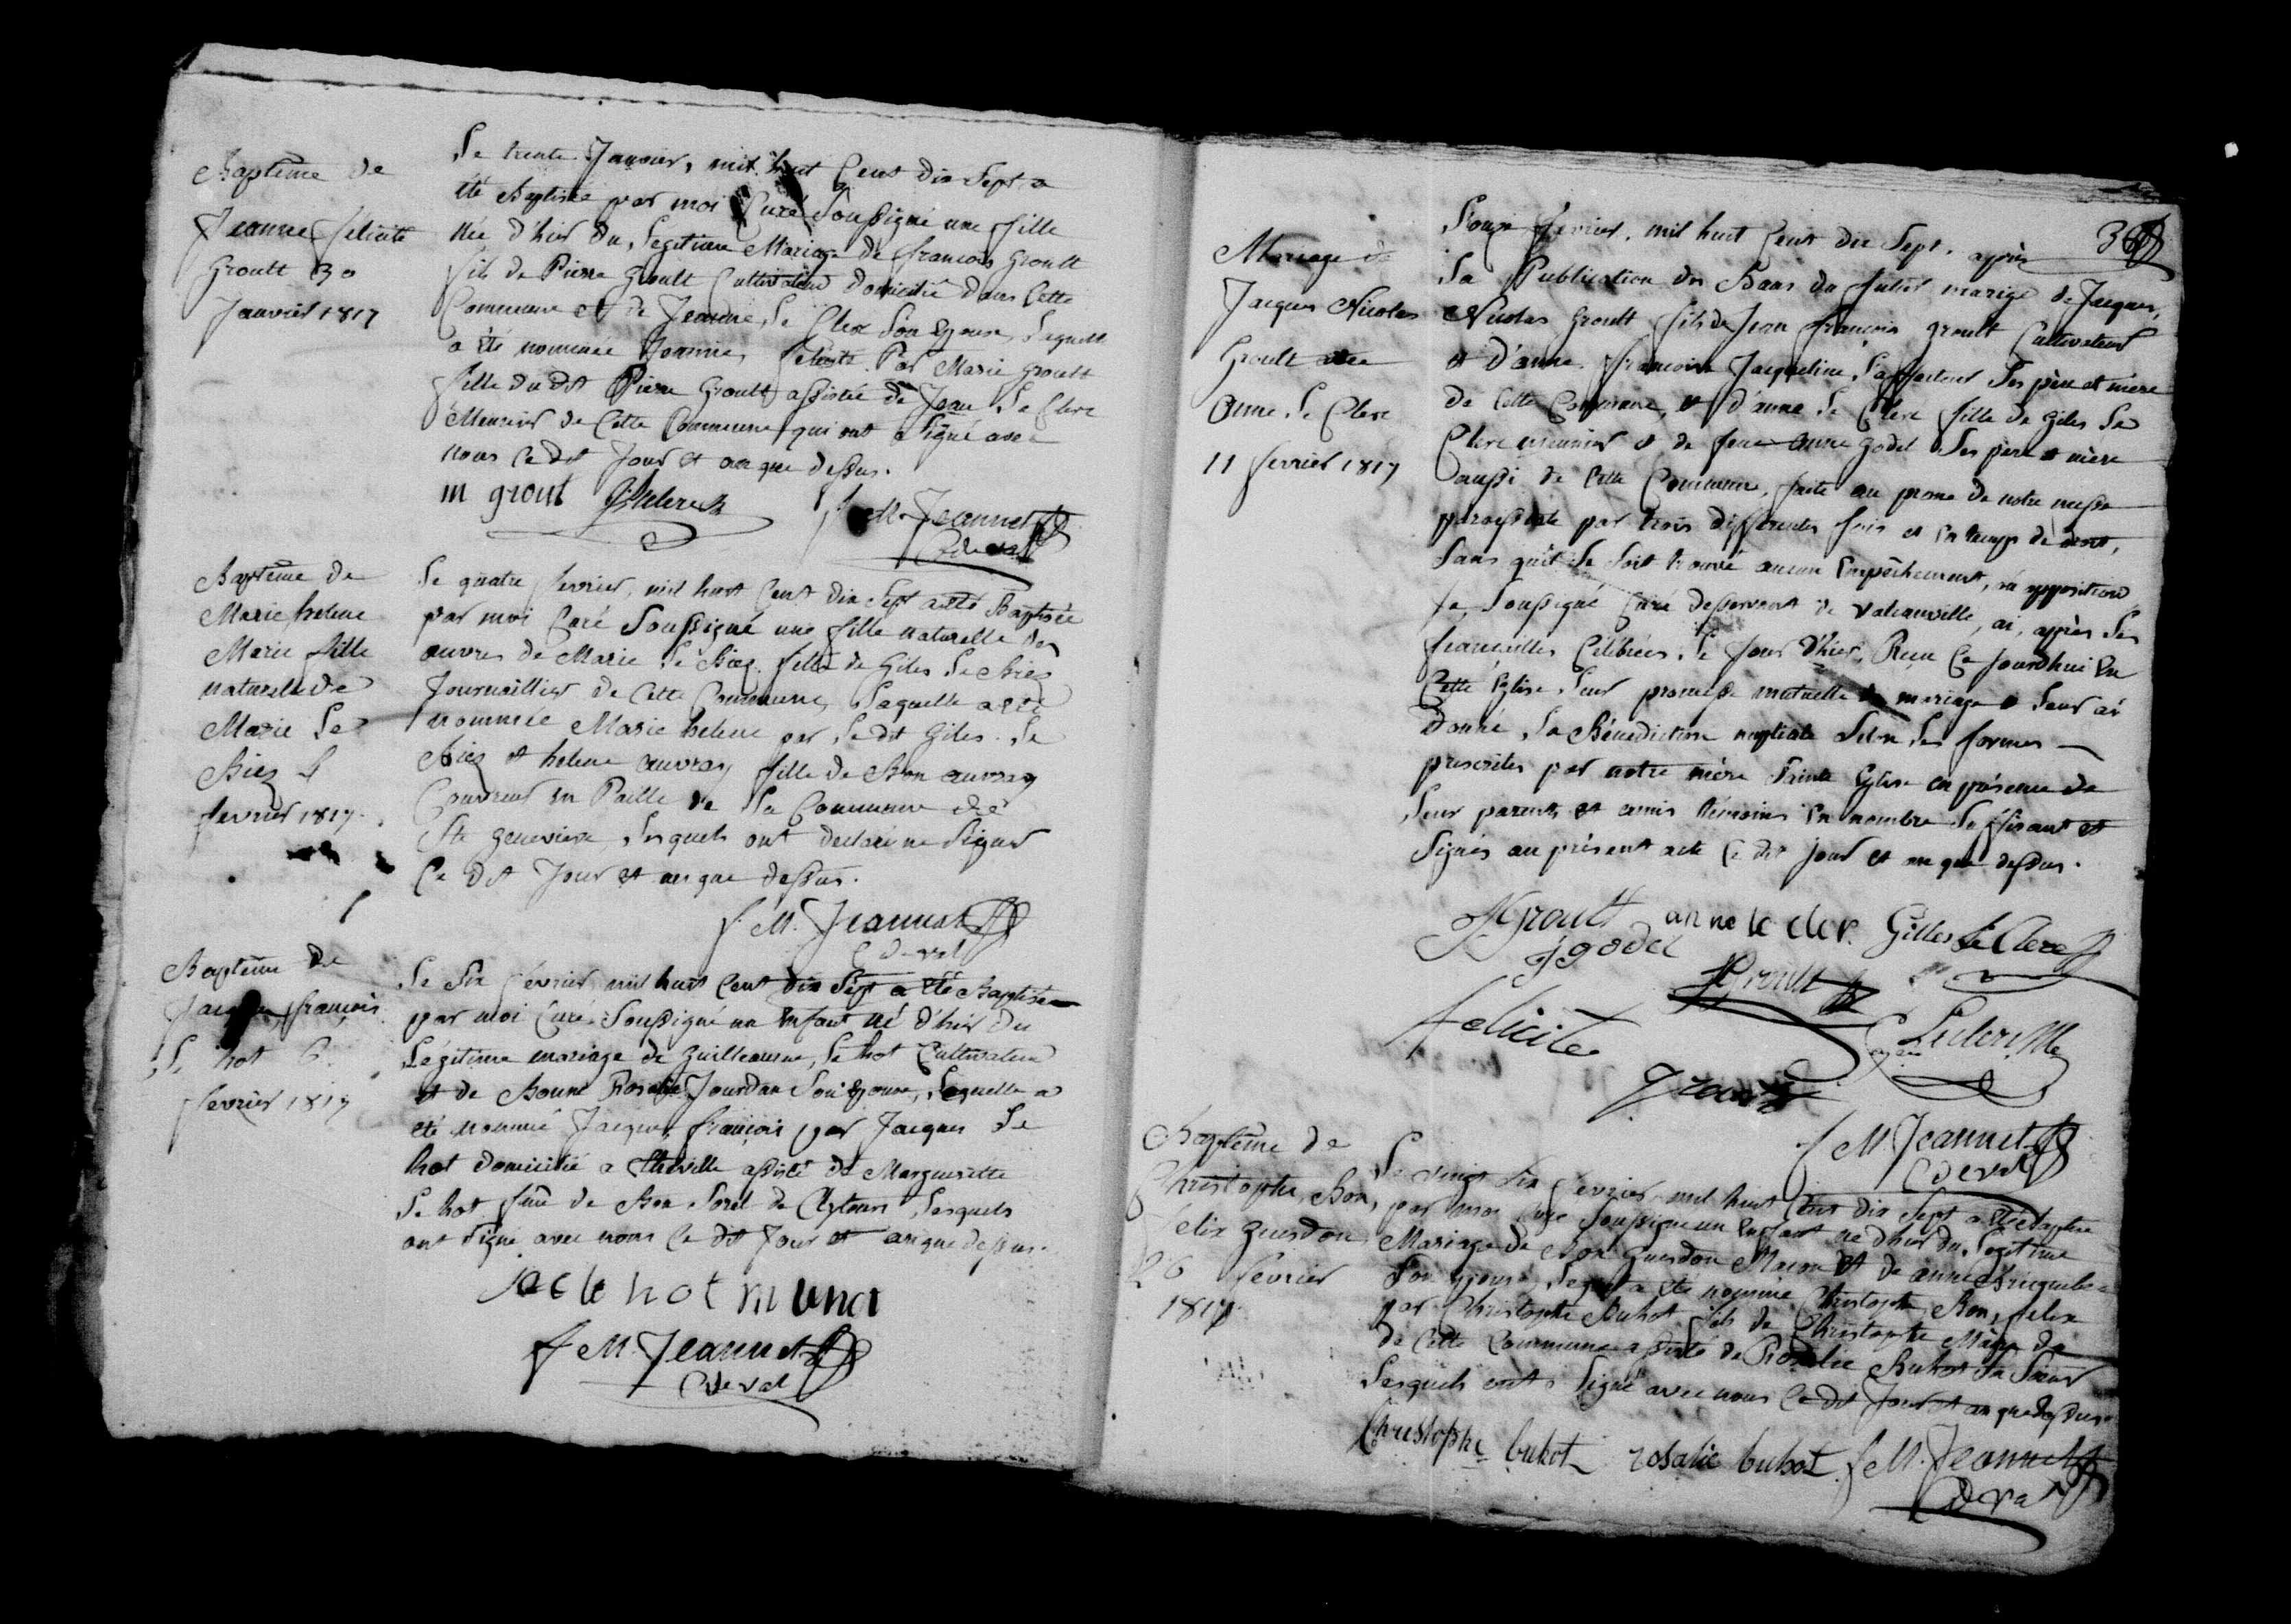 Baptême de
Jeanne felicité
Groult 30
Janvier 1817
Le trente Janvier, mil huit Cent dix Sept a
été Baptisée par moi Curé Soussigné une fille
née d'hier du Legitime Mariage de francois Groult
fils de Pierre Groult Cultivateur domicilié dans Cette
Commune et de Jeanne Le Clerc son Epouse, Laquelle
a été nommée Jeanne, felicité Par Marie Groult
fille du dit Pierre Groult assistée de Jean Le Clerc
Meunier de Cette Commune qui ont Signé avec
nous Ce dit Jour et an que dessus.
m grout
f. M. Jeannet
C de val
Baptême de
Marie helene
Marie fille
naturelle de
Marie Le
Biez 4
fevrier 1817.
Le quatre fevrier, mil huit Cent dix Sept a été Baptisée
par moi Curé Soussigné une fille naturelle des
œuvres de Marie Le Biez fille de Giles Le Biez
Journaillier de Cette Commune, Laquelle a été
nommée Marie helene par Le dit Giles Le
Biez et helene auvray fille de Bon auvray
Couvreur en Paille de La Commune de
Ste genevieve, Lesquels ont declaré ne Signer
Ce dit Jour et an que dessus.
f. M. Jeannet
C de val
Baptême de
Jacques francois
Le hot 6
fevrier 1817
Le Six fevrier mil huit Cent dix Sept a été Baptisé
par moi Curé Soussigné un Enfant né d'hier du
Légitime mariage de Guilleaume Le hot Cultivateur
et de Bonne Rosalie Jourdan Son Epouse, Laquelle a
été nommé Jacques, francois par Jacques Le
hot domicilié a theville assisté de Marguerite
Le hot fme de Bon Sorel de Clytours Lesquels
ont Signé avec nous Ce dit Jour et an que dessus.
jac le hot
f M. Jeannet
C de val
36
Mariage de
Jacques Nicolas
Groult avec
Anne Le Clerc
11 fevrier 1817
L'onze fevrier, mil huit Cent dix Sept, après
La Publication des Bans du futur mariage de Jacques,
Nicolas Groult fils de Jean francois groult Cultivateur
et D'anne francoise Jacqueline Ses père et mère
de Cette Commune, et d'anne Le Clerc fille de Giles Le
Clerc meunier et de feue anne godel Ses père et mère
aussi de Cette Commune, faite au prone de notre messe
paroissiale par trois differentes fois et en temps de droit,
Sans qu'il Se Soit trouvé aucun Empêchement, ni opposition
Je Soussigné Curé desservant de Valcanville, ai, après Les
fiancailles Célébrées, Le jour d'hier, Recu Ce Jourdhui En
Cette Eglise Leur promesse mutuelle de mariage et Leur ai
Donné La Bénediction nuptiale Selon Les formes
prescrites par notre mère Sainte Eglise en présence de
Leur parents et amis témoins En nombre Suffisant et
Signés au présent acte Ce dit jour et an que dessus.
JGroult anne le cler. Gilles Le Clerc
J godel
JGroult
felicite
groult
f M. Jeannet
C de val
Baptême de
Christophe, Bon,
felix guesdon
26 fevrier
1817
Le vingt Six fevrier mil huit Cent dix Sept a été Baptisé
par moi Curé Soussigné un Enfant né d'hier du Legitime
Mariage de Bon Guesdon Macon et de anne
Son epouse, Lequel a été nommé Christophe, Bon, felix
par Christophe Buhot fils de Christophe Maire de
de Cette Commune assisté de Rosalie Buhot Sa Sœur
Lesquels ont Signé avec nous Ce dit Jour et an que dessus
Christophe buhot rosalie buhot f M. Jeannet
C de val